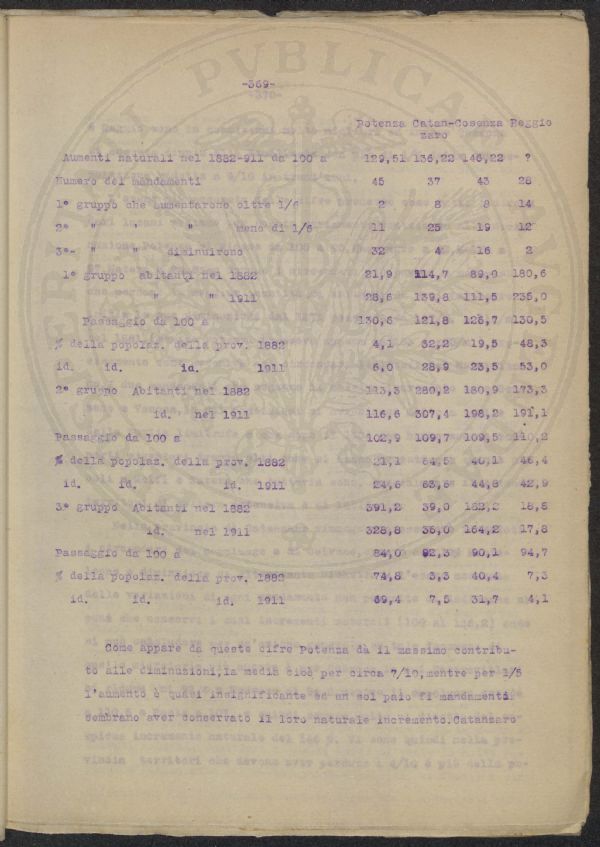 -369-
Potenza Catan-Cosenza Reggio
zaro
Aumenti naturali nel 1882-911 da 100 a 129,51 136,22 146,22 ?
Numero dei mandamenti 45 37 43 28
1º gruppo che aumentarono oltre 1/6 2 8 8 14
2º " " " meno di 1/6 11 25 19 12
3º- " " diminuirono 32 4 16 2
1º gruppo abitanti nel 1882 21,9 114,7 89,0 180,6
" " 1911 28,6 139,8 111,5 235,0
Passaggio da 100 a 130,6 121,8 126,7 130,5
% della popolaz. della prov. 1882 4,1 32,2 19,5 48,3
id. id. id. 1911 6,0 28,9 23,5 53,0
2º gruppo Abitanti nel 1882 113,3 280,2 180,9 173,3
id. nel 1911 116,6 307,4 198,2 191,1
Passaggio da 100 a 102,9 109,7 109,5 110,2
% della popolaz. della prov. 1882 21,1 64,5 40,1 46,4
id. id. id. 1911 24,6 63,6 44,8 42,9
3º gruppo Abitanti nel 1882 391,2 39,0 182,2 18,8
id. nel 1911 328,8 36,0 164,2 17,8
Passaggio da 100 a 84,0 92,3 90,1 94,7
% della popolaz. della prov. 1882 74,8 3,3 40,4 7,3
id. id. id. 1911 69,4 7,5 31,7 4,1
Come appare da queste cifre Potenza dà il massimo contribu-
to alle diminuzioni,la media cioè per circa 7/10,mentre per 1/5
l'aumento è quasi insignificante ed un sol paio fi mandamenti
sembrano aver conservato il loro naturale incremento.Catanzaro